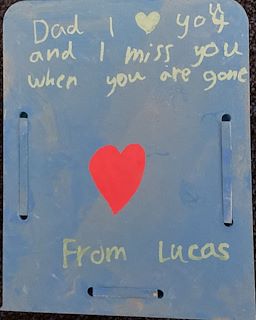 Dad I ♥ you
and I miss you
when you are gone
From Lucas